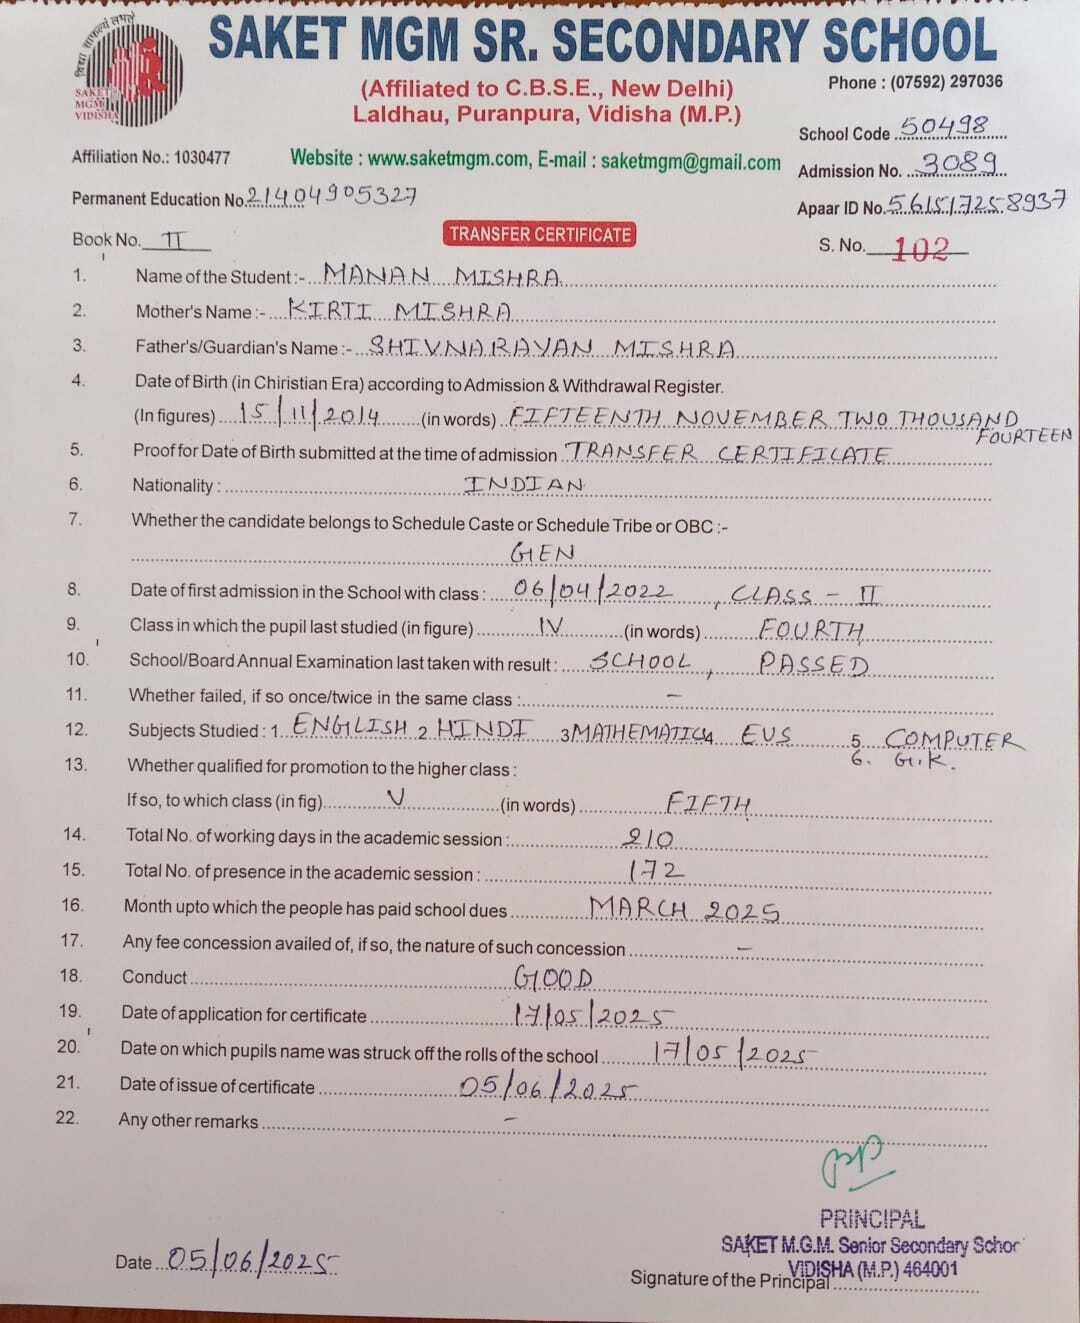 विद्या साफल्यं लभते
SAKET
MGM
VIDISHA
SAKET MGM SR. SECONDARY SCHOOL
(Affiliated to C.B.S.E., New Delhi)
Phone : (07592) 297036
Laldhau, Puranpura, Vidisha (M.P.)
School Code 50498
Affiliation No.: 1030477
Website : www.saketmgm.com, E-mail : saketmgm@gmail.com
Admission No. 3089
Permanent Education No. 21404905327
Apaar ID No. 561517258937
Book No. II
TRANSFER CERTIFICATE
S. No. 102
1. Name of the Student :- MANAN MISHRA
2. Mother's Name :- KIRTI MISHRA
3. Father's/Guardian's Name :- SHIVNARAYAN MISHRA
4. Date of Birth (in Chiristian Era) according to Admission & Withdrawal Register.
(In figures) 15/11/2014 (in words) FIFTEENTH NOVEMBER TWO THOUSAND
FOURTEEN
5. Proof for Date of Birth submitted at the time of admission TRANSFER CERTIFICATE
6. Nationality : INDIAN
7. Whether the candidate belongs to Schedule Caste or Schedule Tribe or OBC :-
GEN
8. Date of first admission in the School with class : 06/04/2022, CLASS - II
9. Class in which the pupil last studied (in figure) IV (in words) FOURTH
10. School/Board Annual Examination last taken with result : SCHOOL, PASSED
11. Whether failed, if so once/twice in the same class : -
12. Subjects Studied : 1 ENGLISH 2 HINDI 3 MATHEMATICS 4 EVS 5. COMPUTER
6. G.K.
13. Whether qualified for promotion to the higher class :
If so, to which class (in fig) V (in words) FIFTH
14. Total No. of working days in the academic session : 210
15. Total No. of presence in the academic session : 172
16. Month upto which the people has paid school dues MARCH 2025
17. Any fee concession availed of, if so, the nature of such concession -
18. Conduct GOOD
19. Date of application for certificate 17/05/2025
20. Date on which pupils name was struck off the rolls of the school 17/05/2025
21. Date of issue of certificate 05/06/2025
22. Any other remarks -
PRINCIPAL
SAKET M.G.M. Senior Secondary Schor
VIDISHA (M.P.) 464001
Date 05/06/2025
Signature of the Principal